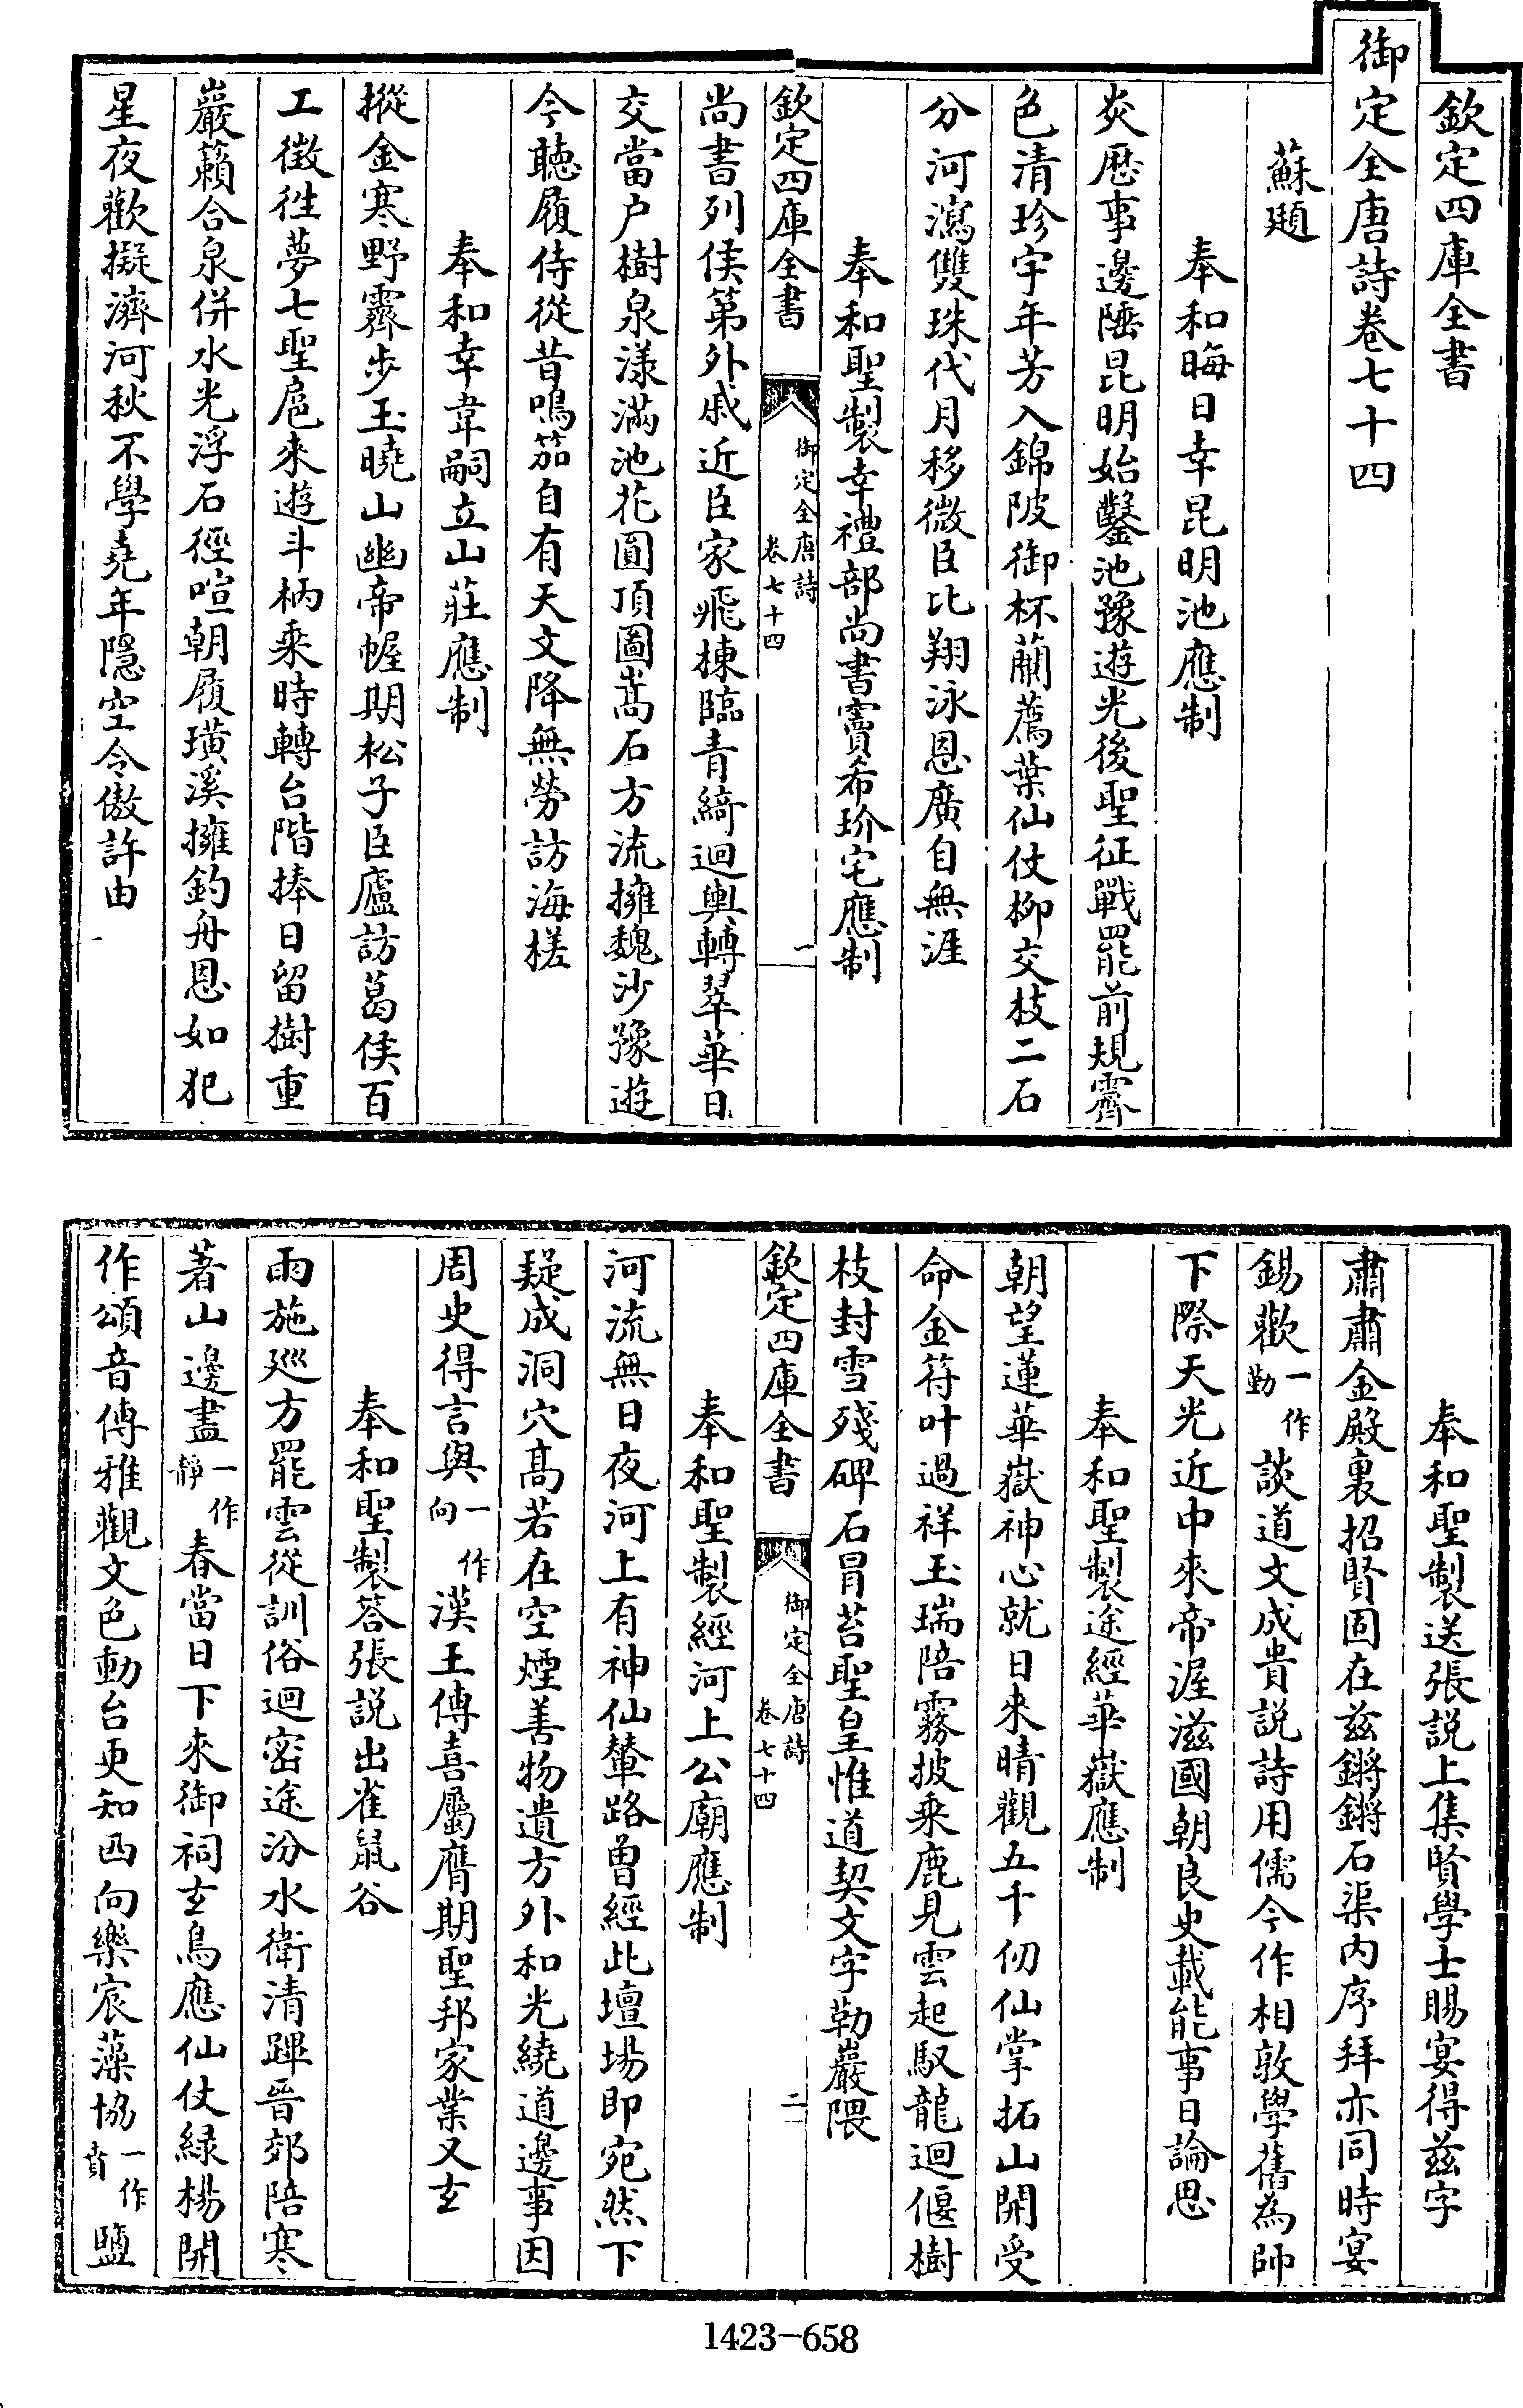 欽定四庫全書
御定全唐詩卷七十四
蘇頲
奉和晦日幸昆明池應制
炎歷事邊陲昆明始鑿池豫遊光後聖征戰罷前規霽
色清珍宇年芳入錦陂御杯蘭薦葉仙仗柳交枝二石
分河瀉雙珠代月移微臣比翔泳恩廣自無涯
奉和聖製幸禮部尚書竇希玠宅應制
欽定四庫全書
御定全唐詩
卷七十四
一
尚書列侯第外戚近臣家飛棟臨青綺迴輿轉翠華日
交當户樹泉漾滿池花圓頂圖嵩石方流擁魏沙豫遊
今聽履侍從昔鳴笳自有天文降無勞訪海槎
奉和幸韋嗣立山莊應制
摐金寒野霽步玉曉山幽帝幄期松子臣廬訪葛侯百
工徵徃夢七聖扈來遊斗柄乘時轉台階捧日留樹重
巖籟合泉併水光浮石徑喧朝履璜溪擁釣舟恩如犯
星夜歡擬濟河秋不學堯年隱空令傲許由
奉和聖製送張説上集賢學士賜宴得兹字
肅肅金殿裏招賢固在兹鏘鏘石渠内序拜亦同時宴
錫歡一作勤談道文成貴説詩用儒今作相敦學舊為師
下際天光近中來帝渥滋國朝良史載能事日論思
奉和聖製途經華嶽應制
朝望蓮華嶽神心就日來晴觀五千仞仙掌拓山開受
命金符叶過祥玉瑞陪霧披乘鹿見雲起馭龍迴偃樹
枝封雪殘碑石冒苔聖皇惟道契文字勒巖隈
欽定四庫全書
御定全唐詩
卷七十四
二
奉和聖製經河上公廟應制
河流無日夜河上有神仙輦路曽經此壇場即宛然下
疑成洞穴髙若在空煙善物遺方外和光繞道邊事因
周史得言與一作向漢王傳喜屬膺期聖邦家業又玄
奉和聖製答張説出雀鼠谷
雨施廵方罷雲從訓俗迴密途汾水衛清蹕晉郊陪寒
著山邊盡一作靜春當日下來御祠玄鳥應仙仗緑楊開
作頌音傳雅觀文色動台更知西向樂宸藻協一作賁鹽
1423-658